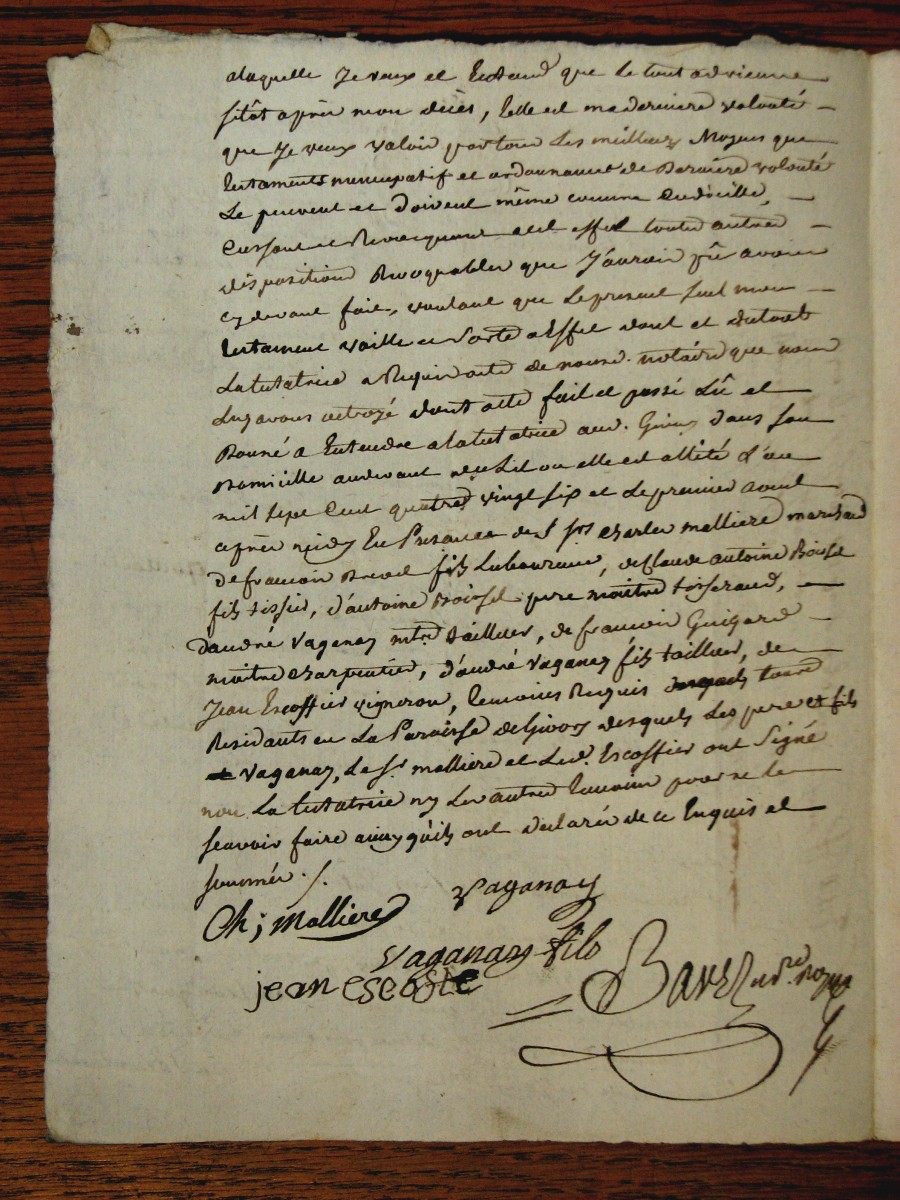 alaquelle Je veux et Entend que le tout advienne
sitôt après mon décès, telle est ma derniere volonté
que Je veux valoir par tous les meilleurs Moyens que
testaments nuncupatif et ordonnance de Derniere volonté
Le peuvent et Doivent même comme Codicille,
Cassant et Revocquant a cet effet toutes autres
dispositions Revoquables que J'aurois pû avoir
cy devant fait, voulant que le present seul mon
testament vaille et Sorte a Effet dont et du tout
La testatrice a Requis acte de nousd. notaire que nous
Luy avons octroyé dont acte fait et passé Lû et
Donné a Entendre a la testatrice aud. Givors dans son
Domicille au devant du Lit ou elle est alitté L'an
mil sept Cent quatres vingt six et Le premier aoust
après midy En Presance de S. Charles mallliere marchand
de francois fils Laboureur, de Claude antoine Boissel
fils tissier, d'antoine Boissel pere maitre tisserand,
d'andré vaganay mtre tailleur, de francois Guigard
maitre Charpentier, d'andré vaganay fils tailleur, de
Jean Escoffier vigneron, temoins Requis tous
Residants en La Paroisse de Givors desquels Les pere et fils
vaganay, Le sr. malliere et Led. Escoffier ont Signé
non La testatrice ny Les autres temoins pour ne le
scavoir faire ainsy qu'ils ont declarés de ce Enquis et
sommés ./.
Ch; Malliere vaganay
vaganay fils
jean escofie Bavet ndre. Royal